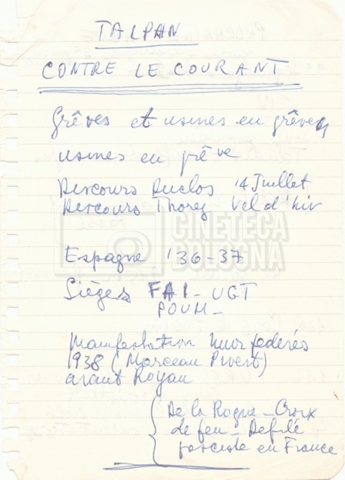 TALPAN
CONTRE LE COURANT
Grêves et usines en grêves
usines en grêve
Discours Duclos 14 Juillet
Discours Thorez Vel d'hiv
CINETECA
BOLOGNA
Espagne '36-37
Sièges FAI - UGT
POUM -
Manifestation Mur fédérés
1938 (Marceau Pivert)
avant Royan
De la Roque - Croix
de feu - Défilé
fasciste en France